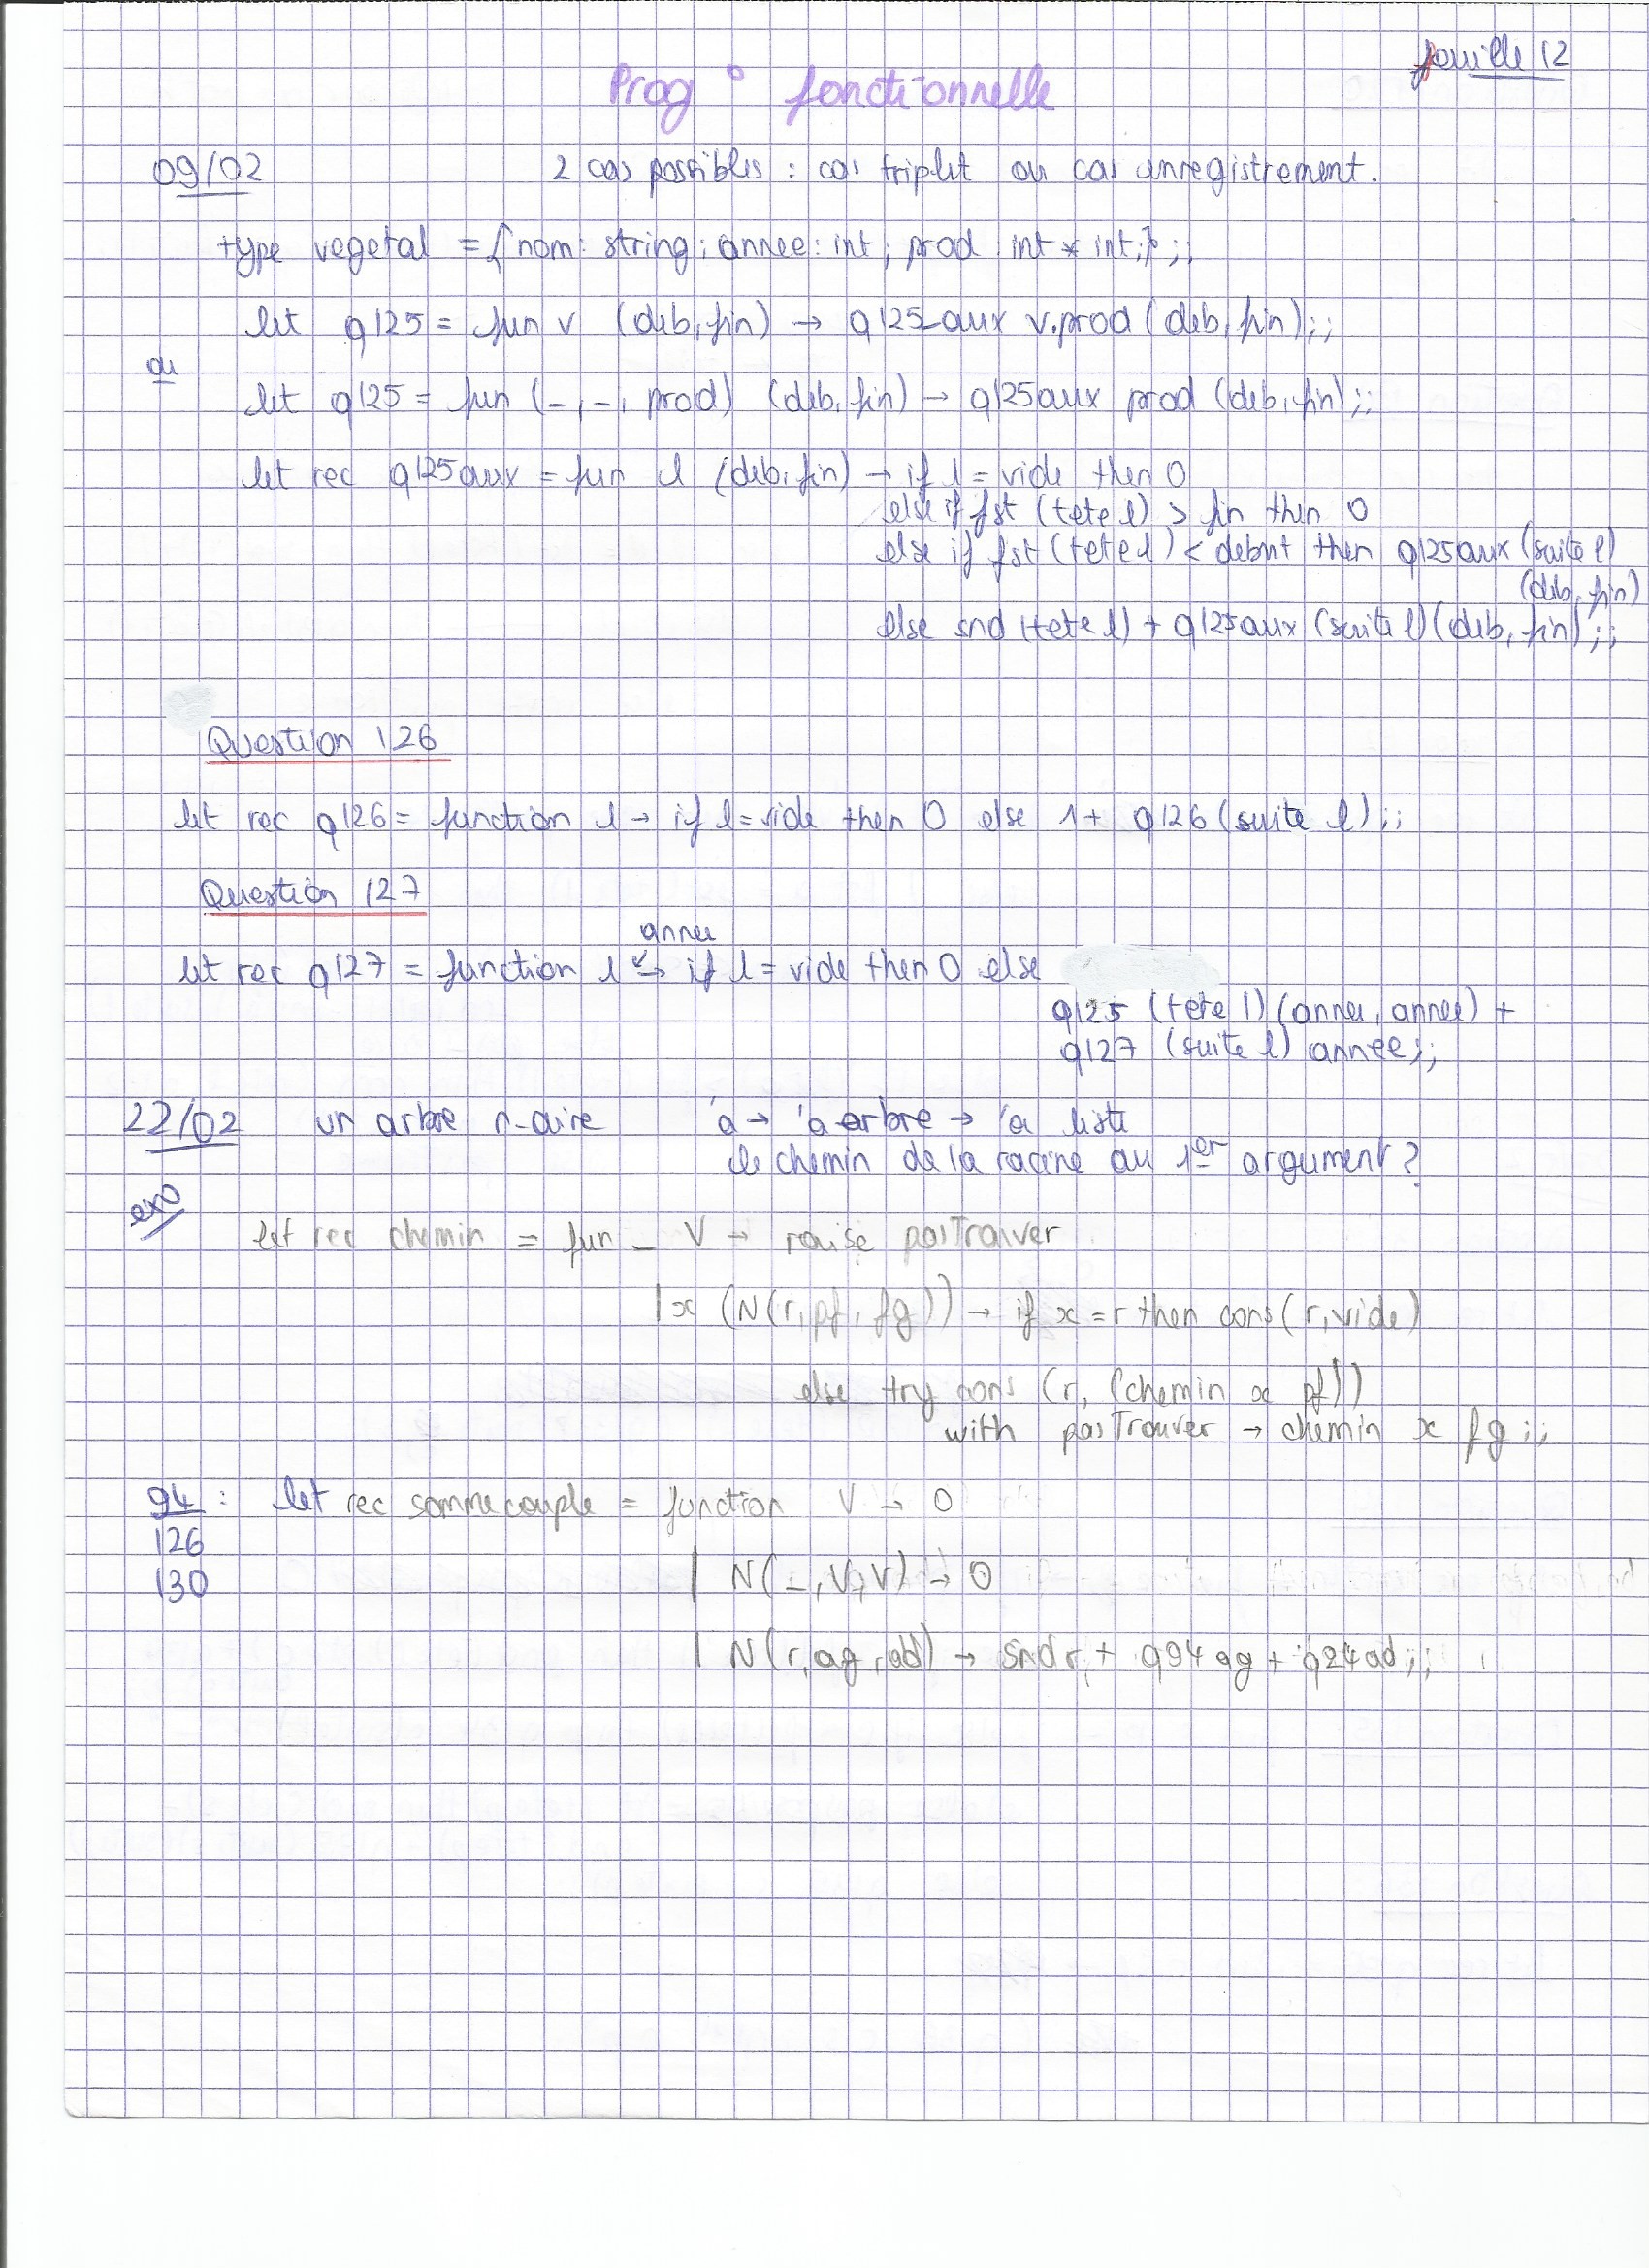 feuille 12
Prog° fonctionnelle
09/02 2 cas possibles : cas triplet ou cas enregistrement.
type vegetal = { nom : string ; annee : int ; prod : int * int ; } ;;
let q125 = fun v (deb, fin) → q125_aux v.prod (deb, fin) ;;
ou
let q125 = fun (_, _, prod) (deb, fin) → q125aux prod (deb, fin) ;;
let rec q125aux = fun l (deb, fin) → if l = vide then 0
else if fst (tete l) > fin then 0
else if fst (tete l) < debut then q125aux (suite l)
(deb, fin)
else snd (tete l) + q125aux (suite l) (deb, fin) ;;
Question 126
let rec q126 = function l → if l = vide then 0 else 1 + q126 (suite l) ;;
Question 127
annee
let rec q127 = function l → if l = vide then 0 else
q125 (tete l) (annee, annee) +
q127 (suite l) annee ;;
22/02 un arbre n-aire 'a → 'a arbre → 'a liste
le chemin de la racine au 1er argument ?
exo
let rec chemin = fun _ V → raise pasTrouver
| x (N(r, pf, fg)) → if x = r then cons (r, vide)
else try cons (r, (chemin x pf))
with pasTrouver → chemin x fg ;;
94 : let rec sommecouple = function V → 0
126
| N(_, V, V) → 0
130
| N(r, ag, ad) → snd r + q94 ag + q24 ad ;;